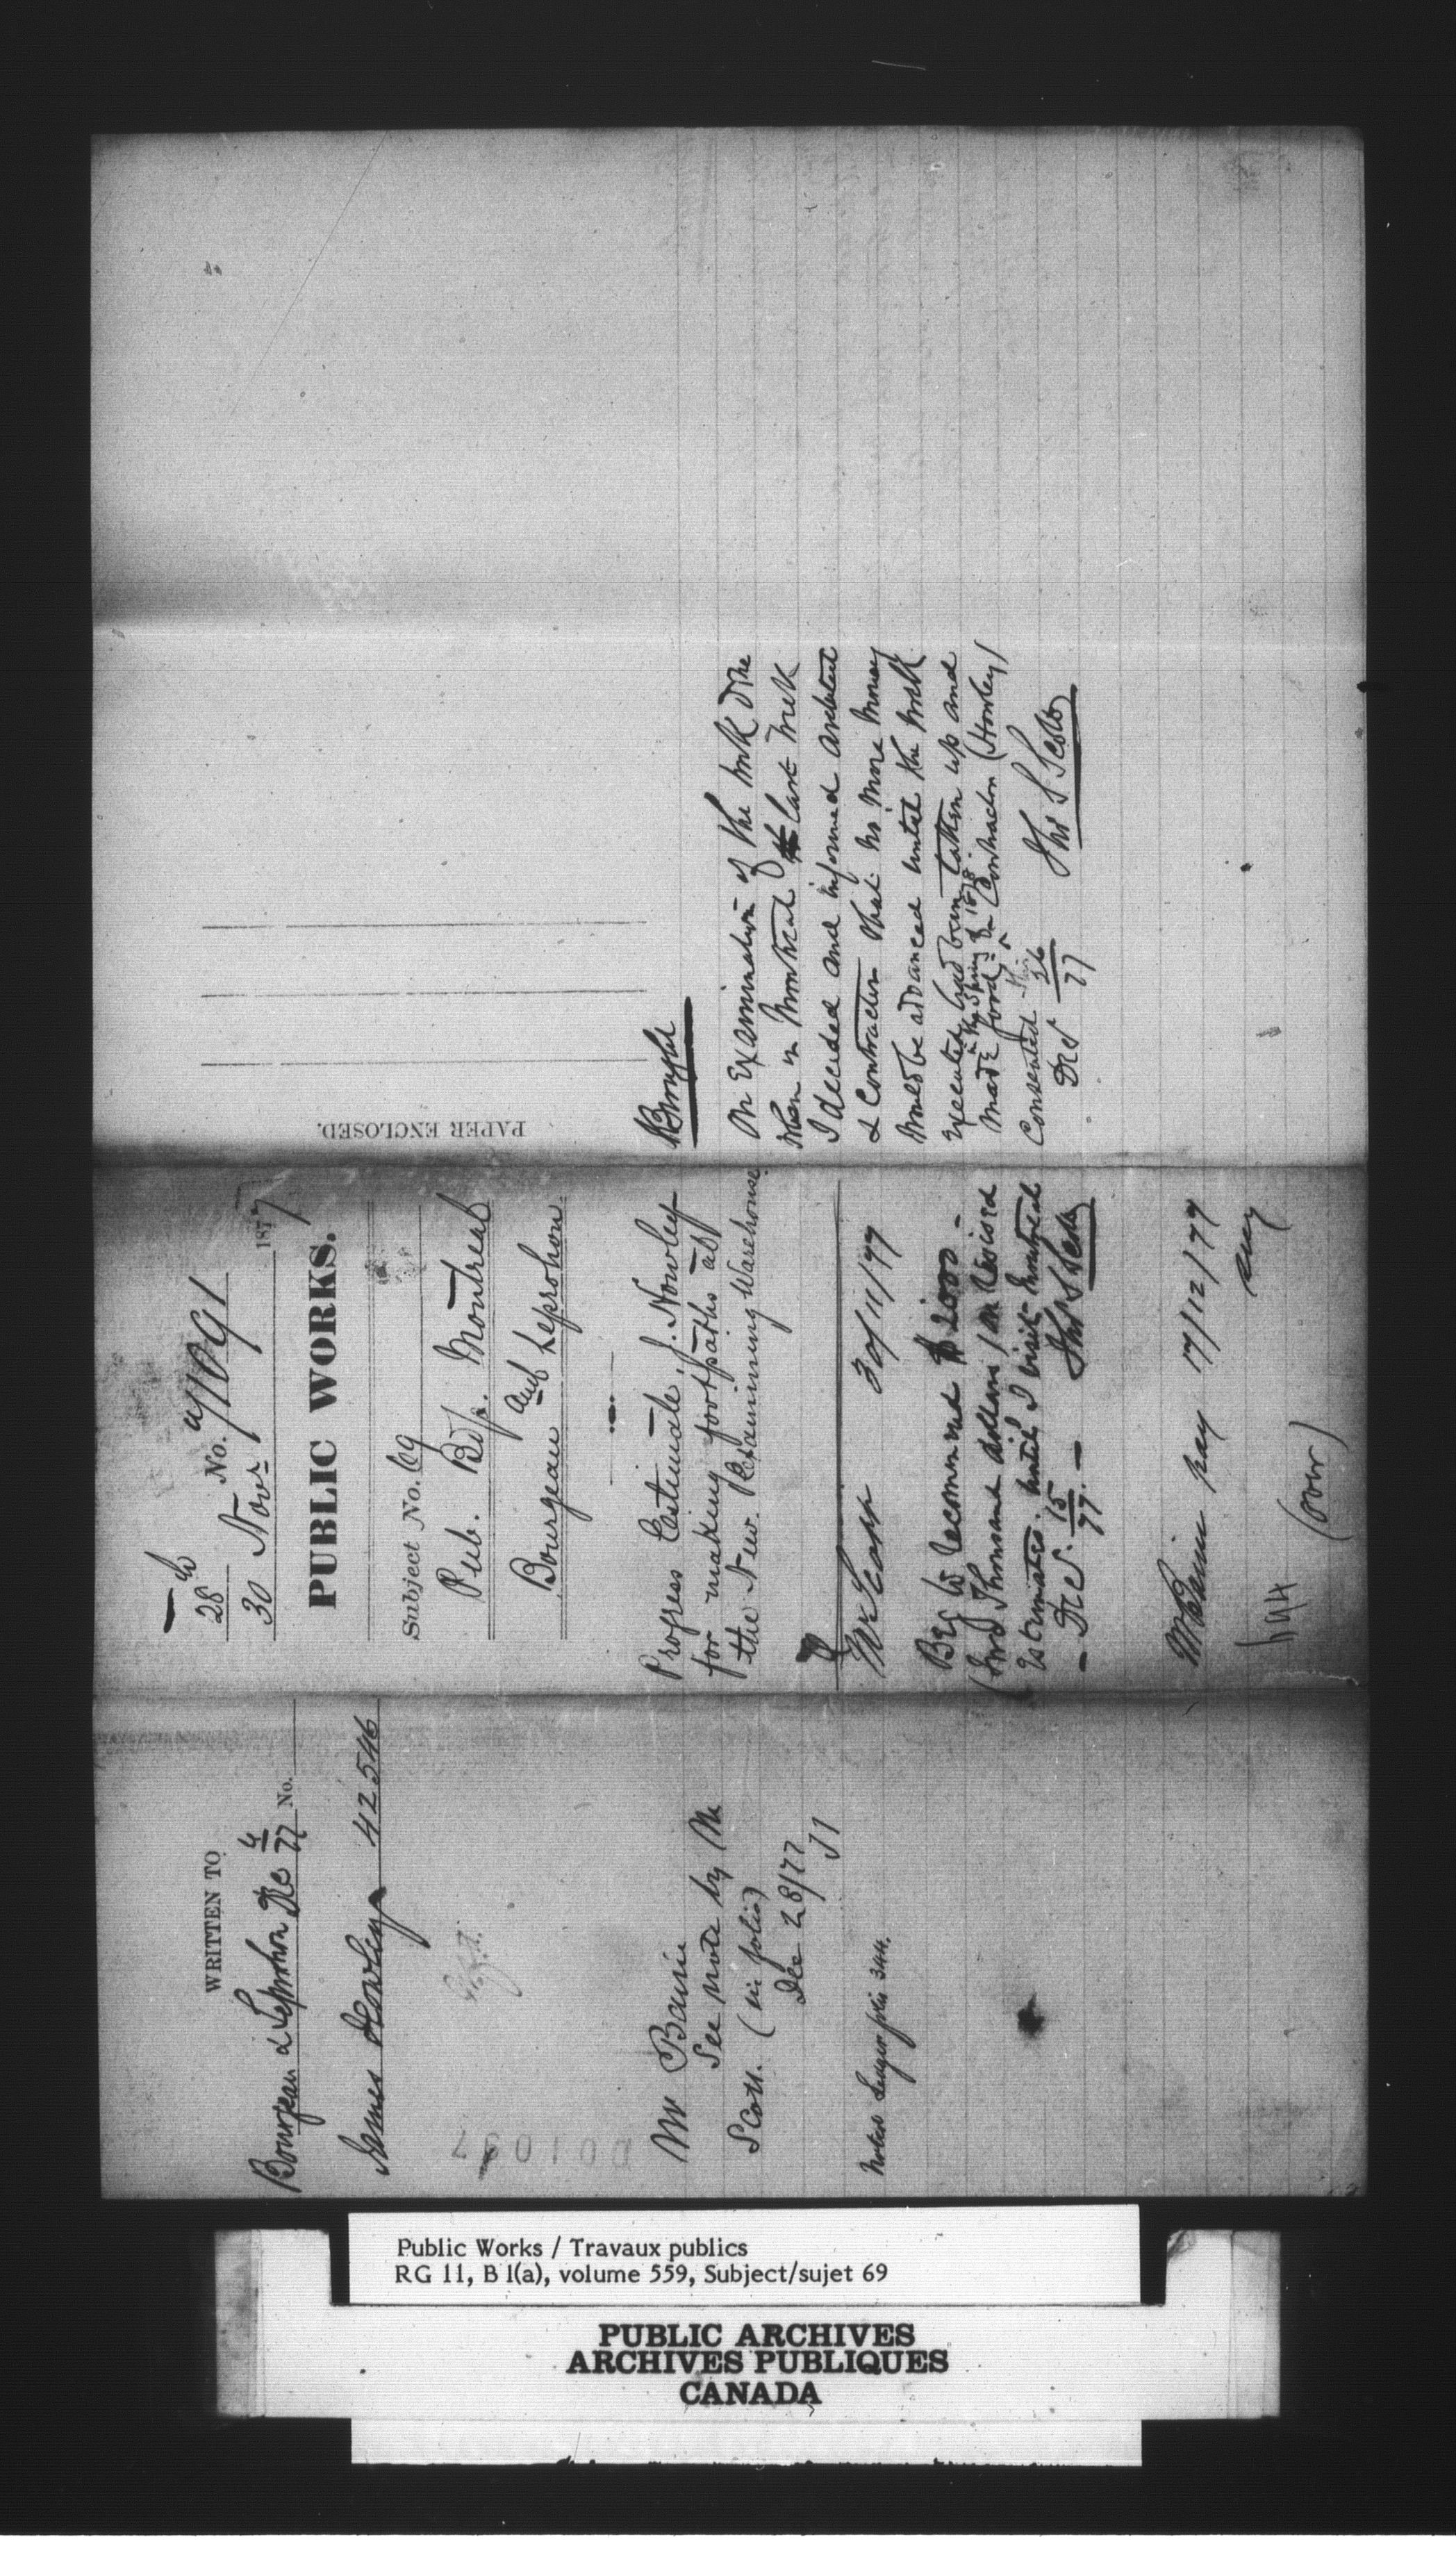 WRITTEN TO
Bourgeau & Leprohon Dec 4/77 No.
James Howley 42546
Mr Bain
See note by Mr
Scott. (in folio)
Dec 28/77
J1
Noted Ledger folio 344.
28th
30 Novr 1877
No. 71091
PUBLIC WORKS.
Subject No. 69
Pub. Bdgs. Montreal
Bourgeau and Leprohon
Progress Estimate, J. Howley
for making footpaths at
the New Examining Warehouse
Mr Scott 30/11/77
Beg to recommend $2000 -
(Two Thousand dollars) on revised
estimates. until I visit Montreal
- Dec. 15/77. - Thos S Scott
Mr Bain pay 17/12/77
344
(over)
PAPER ENCLOSED.
Brought
On Examination of the work
when in Montreal last week
I decided and informed architect
& Contractor that no more money
would be advanced until the work
executed had been taken up and
made good in the Spring of 1878. The Contractor (Howley)
Consented
Dec 26/77 Thos S Scott
Public Works / Travaux publics
RG 11, B 1(a), volume 559, Subject/sujet 69
PUBLIC ARCHIVES
ARCHIVES PUBLIQUES
CANADA